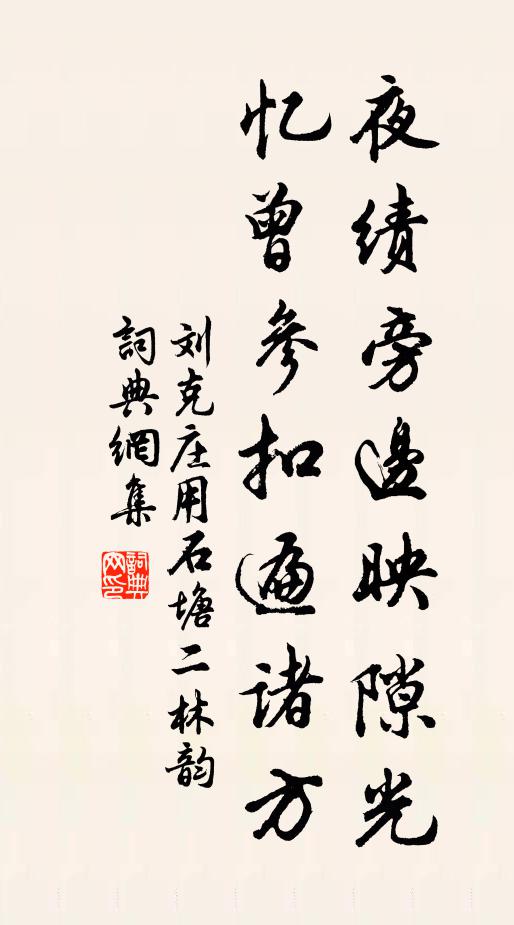 夜绩旁邊映隙光
忆曾参扣遍诸方
刘克庄用石塘二林韵
詞典網集
詞典网印